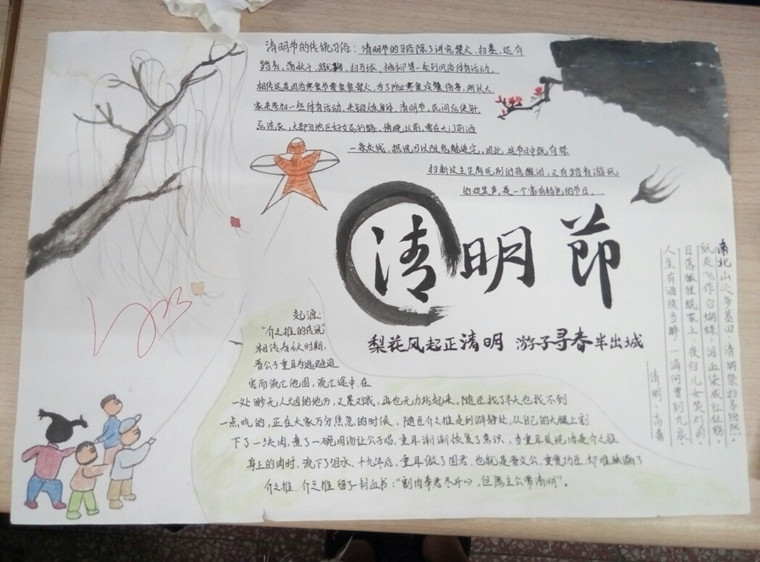 清明节的传统习俗：清明节的习俗除了讲究禁火、扫墓，还有
踏青、荡秋千、蹴鞠、打马球、插柳等一系列风俗体育活动。
相传这是因为寒食节要寒食禁火，为了防止寒食冷餐伤身，所以大
家来参加一些体育活动，来锻炼身体。清明节，民间忌使针，
忌洗衣，大部分地区妇女忌行路。傍晚以前，要在大门前洒
一条灰线，据说可以阻止鬼魂进宅。因此，这节日中既有祭
扫新坟生离死别的悲酸泪，又有踏青游玩
的欢笑声，是一个富有特色的节日。
清明節
梨花风起正清明 游子寻春半出城
南北山头多墓田 清明祭扫各纷然
纸灰飞作白蝴蝶 泪血染成红杜鹃
日落狐狸眠冢上 夜归儿女笑灯前
人生有酒须当醉 一滴何曾到九泉
清明·高翥
起源：
“介之推的传说”
相传春秋时期，
晋公子重耳为逃避迫
害而流亡他国，流亡途中，在
一处渺无人烟的地方，又累又饿，再也无力站起来。随臣找了半天也找不到
一点吃的，正在大家万分焦急的时候，随臣介之推走到僻静处，从自己的大腿上割
下了一块肉，煮了一碗肉汤让公子喝，重耳渐渐恢复了意识，当重耳发现肉是介之推
身上的肉时，流下了泪水。十九年后，重耳做了国君，也就是晋文公，重赏功臣，却唯独漏了
介之推，介之推留了封血书：“割肉奉君尽丹心，但愿主公常清明”。